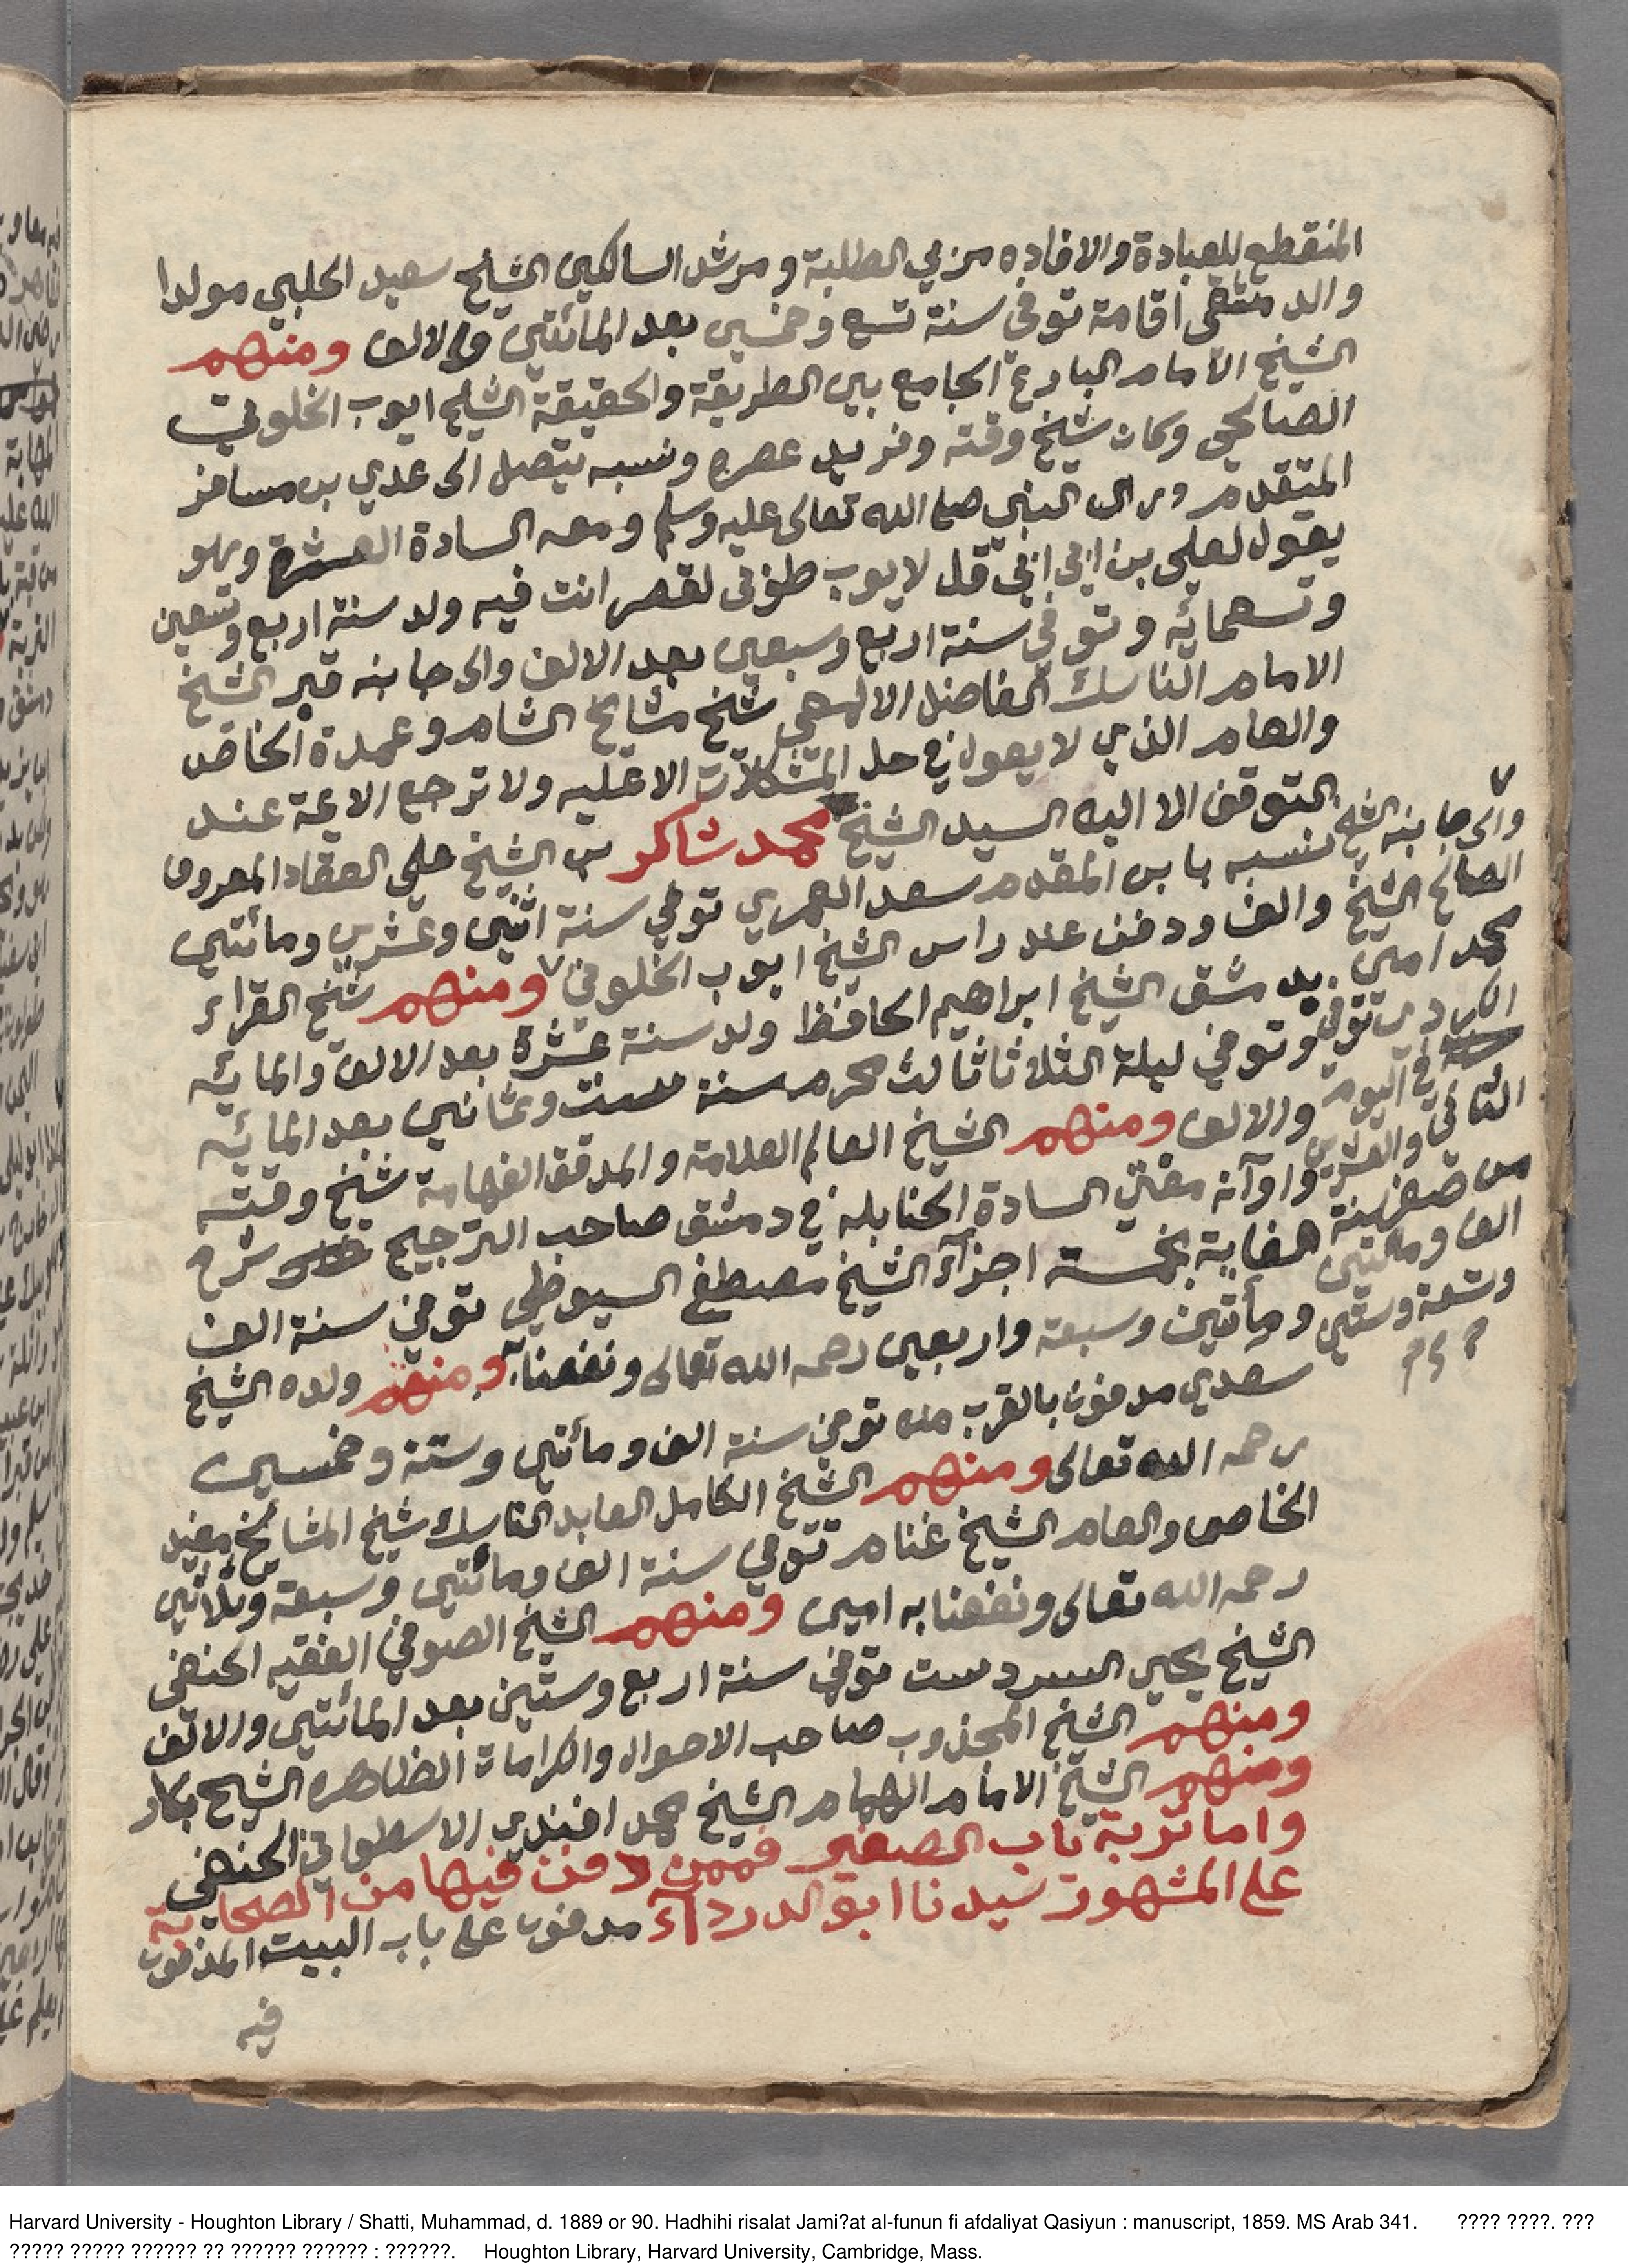 المنقطع للعبادة والافاده مربي الطلبة ومرشد السالكين الشيخ سعيد الحلبي مولدا
والدمشقي اقامة توفي سنة تسع وخمسين بعد المائتين والالف ومنهم
الشيخ الامام البارع الجامع بين الطريقة والحقيقة الشيخ ايوب الخلوتي
الصالحي وكان شيخ وقته وفريد عصره ونسبه يتصل الى عدي بن مسافر
المتقدم وراى النبي صلى الله تعالى عليه وسلم ومعه السادة العشرة وهو
يقول لعلي بن ابي قل لايوب طوبى لقصر انت فيه ولد سنة اربع وتسعين
وتسعمائه وتوفي سنة اربع وسبعين بعد الالف والى جانبه قبر الشيخ
الامام الناسك الفاضل الالمعي شيخ مشايخ الشام وعمدة الخاص
والعام الذي لا يعول في حل المشكلات الا عليه ولا ترجع الائمة عند
التوقف الا اليه السيد الشيخ محمد شاكر بن الشيخ علي العقاد المعروف
نسبه بابن المقدم سعد العمري توفي سنة اثنين وعشرين ومائتين
والف ودفن عند راس الشيخ ايوب الخلوتي ومنهم شيخ القراء
بدمشق الشيخ ابراهيم الحافظ ولد سنة عشرة بعد الالف والمائه
وتوفي ليلة الثلاثا ثالث محرم سنة ست وثمانين بعد المائه
والالف ومنهم الشيخ العالم العلامة والمدقق الفهامة شيخ وقته
واوآنه مفتي السادة الحنابله في دمشق صاحب الترجيح شرح
الغاية بخمسة اجزآء الشيخ مصطفى السيوطي توفي سنة الف
ومأتين وسبعة واربعين رحمه الله تعالى ونفعنا به ومنهم ولده الشيخ
سعدي مدفون بالقرب منه توفي سنة الف ومأتين وستة وخمسين
رحمه الله تعالى ومنهم الشيخ الكامل العابد الناسك شيخ المشايخ مفيد
الخاص والعام الشيخ غنام توفي سنة الف ومائتين وسبعة وثلاثين
رحمه الله تعالى ونفعنا به امين ومنهم الشيخ الصوفي الفقيه الحنفي
الشيخ يحيى السردست توفي سنة اربع وستين بعد المائتين والالف
ومنهم الشيخ المجذوب صاحب الاحوال والكرامات الظاهره الشيخ بكار
ومنهم الشيخ الامام الهمام الشيخ محمد افندي الاسطواني الحنفي
واما تربة باب الصغير فممن دفن فيها من الصحابة
على المشهور سيدنا ابو الدردآء مدفون على باب البيت المدفون
فيه
والى جانبه الشيخ
الصالح الشيخ
محمد امين
الكردي توفي
في اليوم
الثاني والعشرين
من صفر سنة
الف ومائتين
وتسعة وستين
Harvard University - Houghton Library / Shatti, Muhammad, d. 1889 or 90. Hadhihi risalat Jami?at al-funun fi afdaliyat Qasiyun : manuscript, 1859. MS Arab 341. ???? ????. ???
????? ????? ?????? ?? ?????? ?????? : ??????. Houghton Library, Harvard University, Cambridge, Mass.